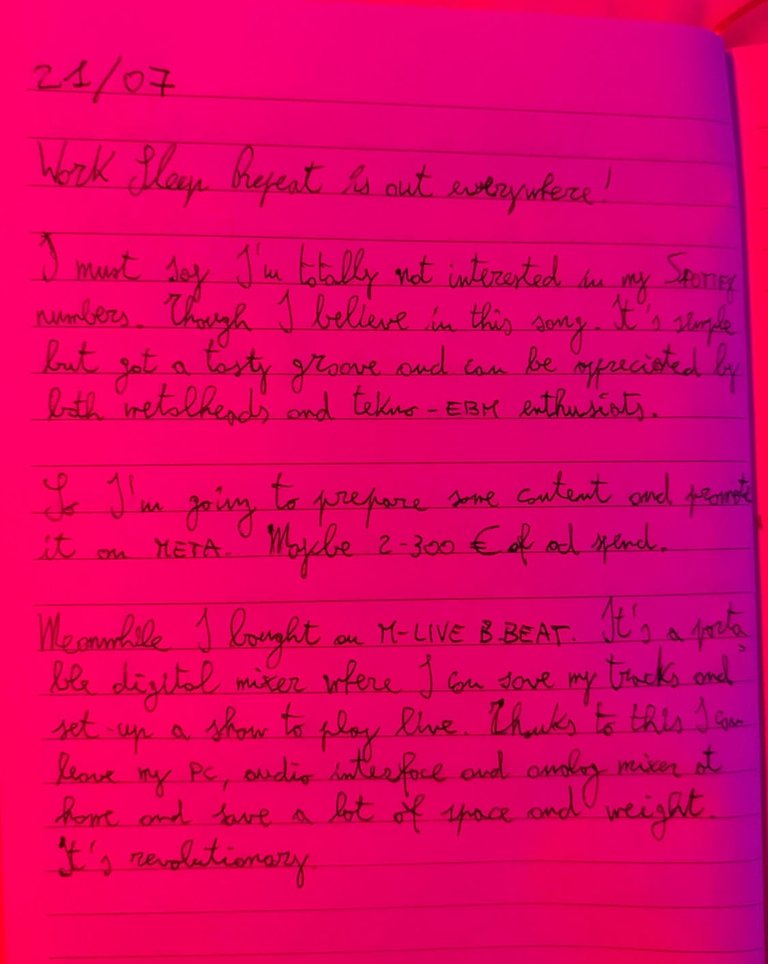 21/07
Work Sleep Repeat is out everywhere!
I must say I'm totally not interested in my SPOTIFY
numbers. Though I believe in this song. It's simple
but got a tasty groove and can be appreciated by
both metalheads and tekno-EBM enthusiasts.
So I'm going to prepare some content and promote
it on META. Maybe 2-300 € of ad spend.
Meanwhile I bought an M-LIVE B.BEAT. It's a porta
ble digital mixer where I can save my tracks and
set-up a show to play live. Thanks to this I can
leave my PC, audio interface and analog mixer at
home and save a lot of space and weight.
It's revolutionary.